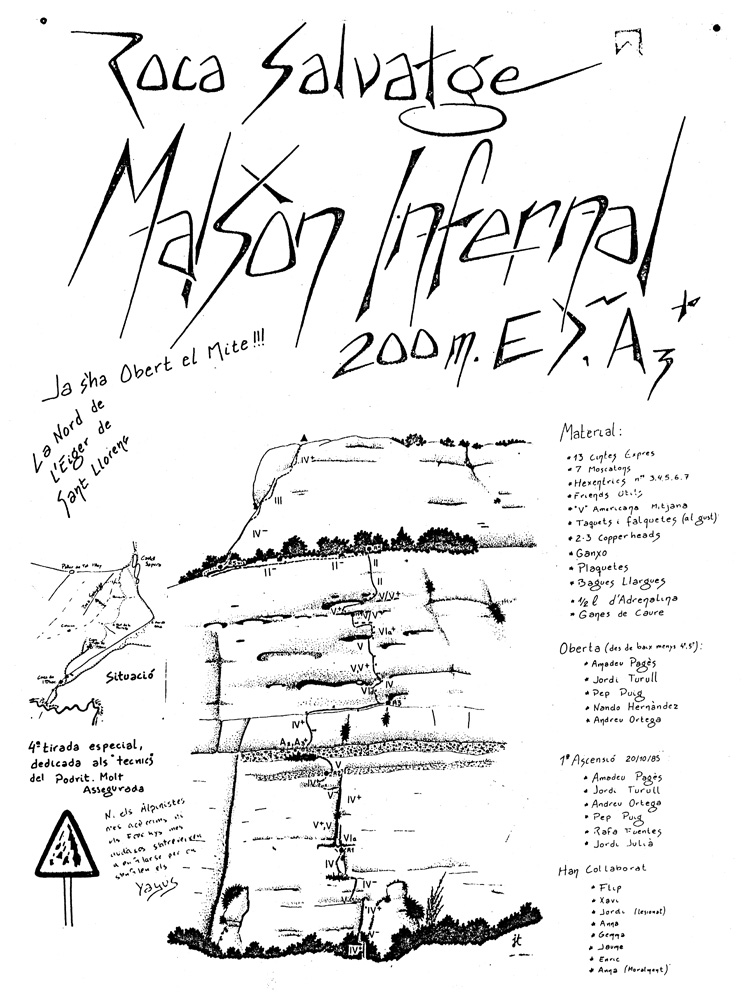 Roca Salvatge
Malsòn Infernal
200 m. E>. A3+
Ja s'ha Obert el Mite!!!
La Nord de
L'Eiger de
Sant Llorenç
Situació
4ª tirada especial,
dedicada als "tecnics"
del Podrit. Molt
Assegurada
N. els Alpinistes
mes
Yayus
IV+
III
IV-
II-
II-
II
II
V/V+
V+
V/V+
VIa+
V
V,V+
IV
VIa
R3
IV+
A2,A3+
V
IV+
V+,V
VIa
R1
IV
IV-
V
IV+
V-
IV+
jt
Material:
* 13 Cintes Expres
* 7 Mosquetons
* Hexentrics nºs 3.4.5.6.7
* Friends Utils
* "V" Americana Mitjana
* Taquets i falquetes (al gust)
* 2-3 Copperheads
* Ganxo
* Plaquetes
* Bagues Llargues
* 1/2 l d'Adrenalina
* Ganes de Caure
Oberta (des de baix menys 4ª,5ª):
* Amadeu Pagès
* Jordi Turull
* Pep Puig
* Nando Hernàndez
* Andreu Ortega
1ª Ascensió 20/10/85
* Amadeu Pagès
* Jordi Turull
* Andreu Ortega
* Pep Puig
* Rafa Fuentes
* Jordi Julià
Han Collaborat
* Flip
* Xavi
* Jordi (lesionat)
* Anna
* Gemma
* Jaume
* Enric
* Anna (Moralment)